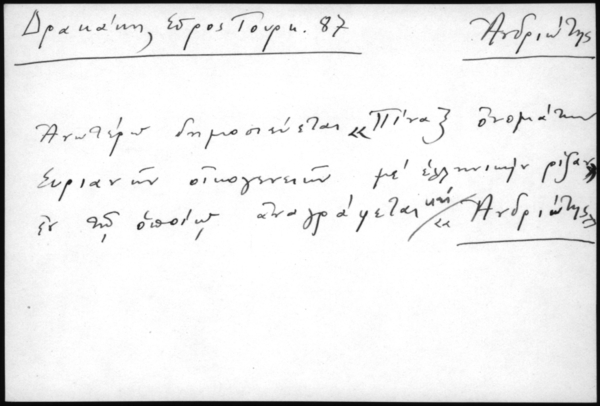 Δρακάκη, Σῦρος Τουρκ. 87 Ἀνδριώτης
Ἀνωτέρω δημοσιεύεται «Πίναξ ὀνομάτων
Συριανῶν οἰκογενειῶν μέ ἑλληνικήν ρίζαν»
ἐν τῷ ὁποίῳ ἀναγράφεται καί «Ἀνδριώτης»